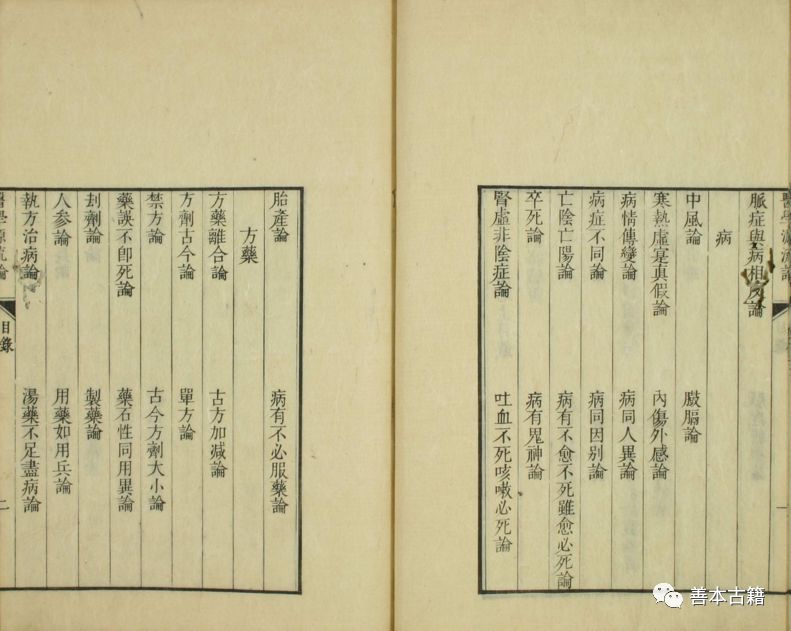 醫學源流論
脈症與病相反論
病
中風論
臌膈論
寒熱虛寔真假論
內傷外感論
病情傳變論
病同人異論
病症不同論
病同因别論
亡陰亡陽論
病有不愈不死雖愈必死論
卒死論
病有鬼神論
腎虛非陰症論
吐血不死咳嗽必死論
胎產論
病有不必服藥論
方藥
方藥離合論
古方加減論
方劑古今論
單方論
禁方論
古今方劑大小論
藥誤不即死論
藥石性同用異論
刦劑論
製藥論
人參論
用藥如用兵論
執方治病論
湯藥不足盡病論
醫學源流論
目錄
二
善本古籍